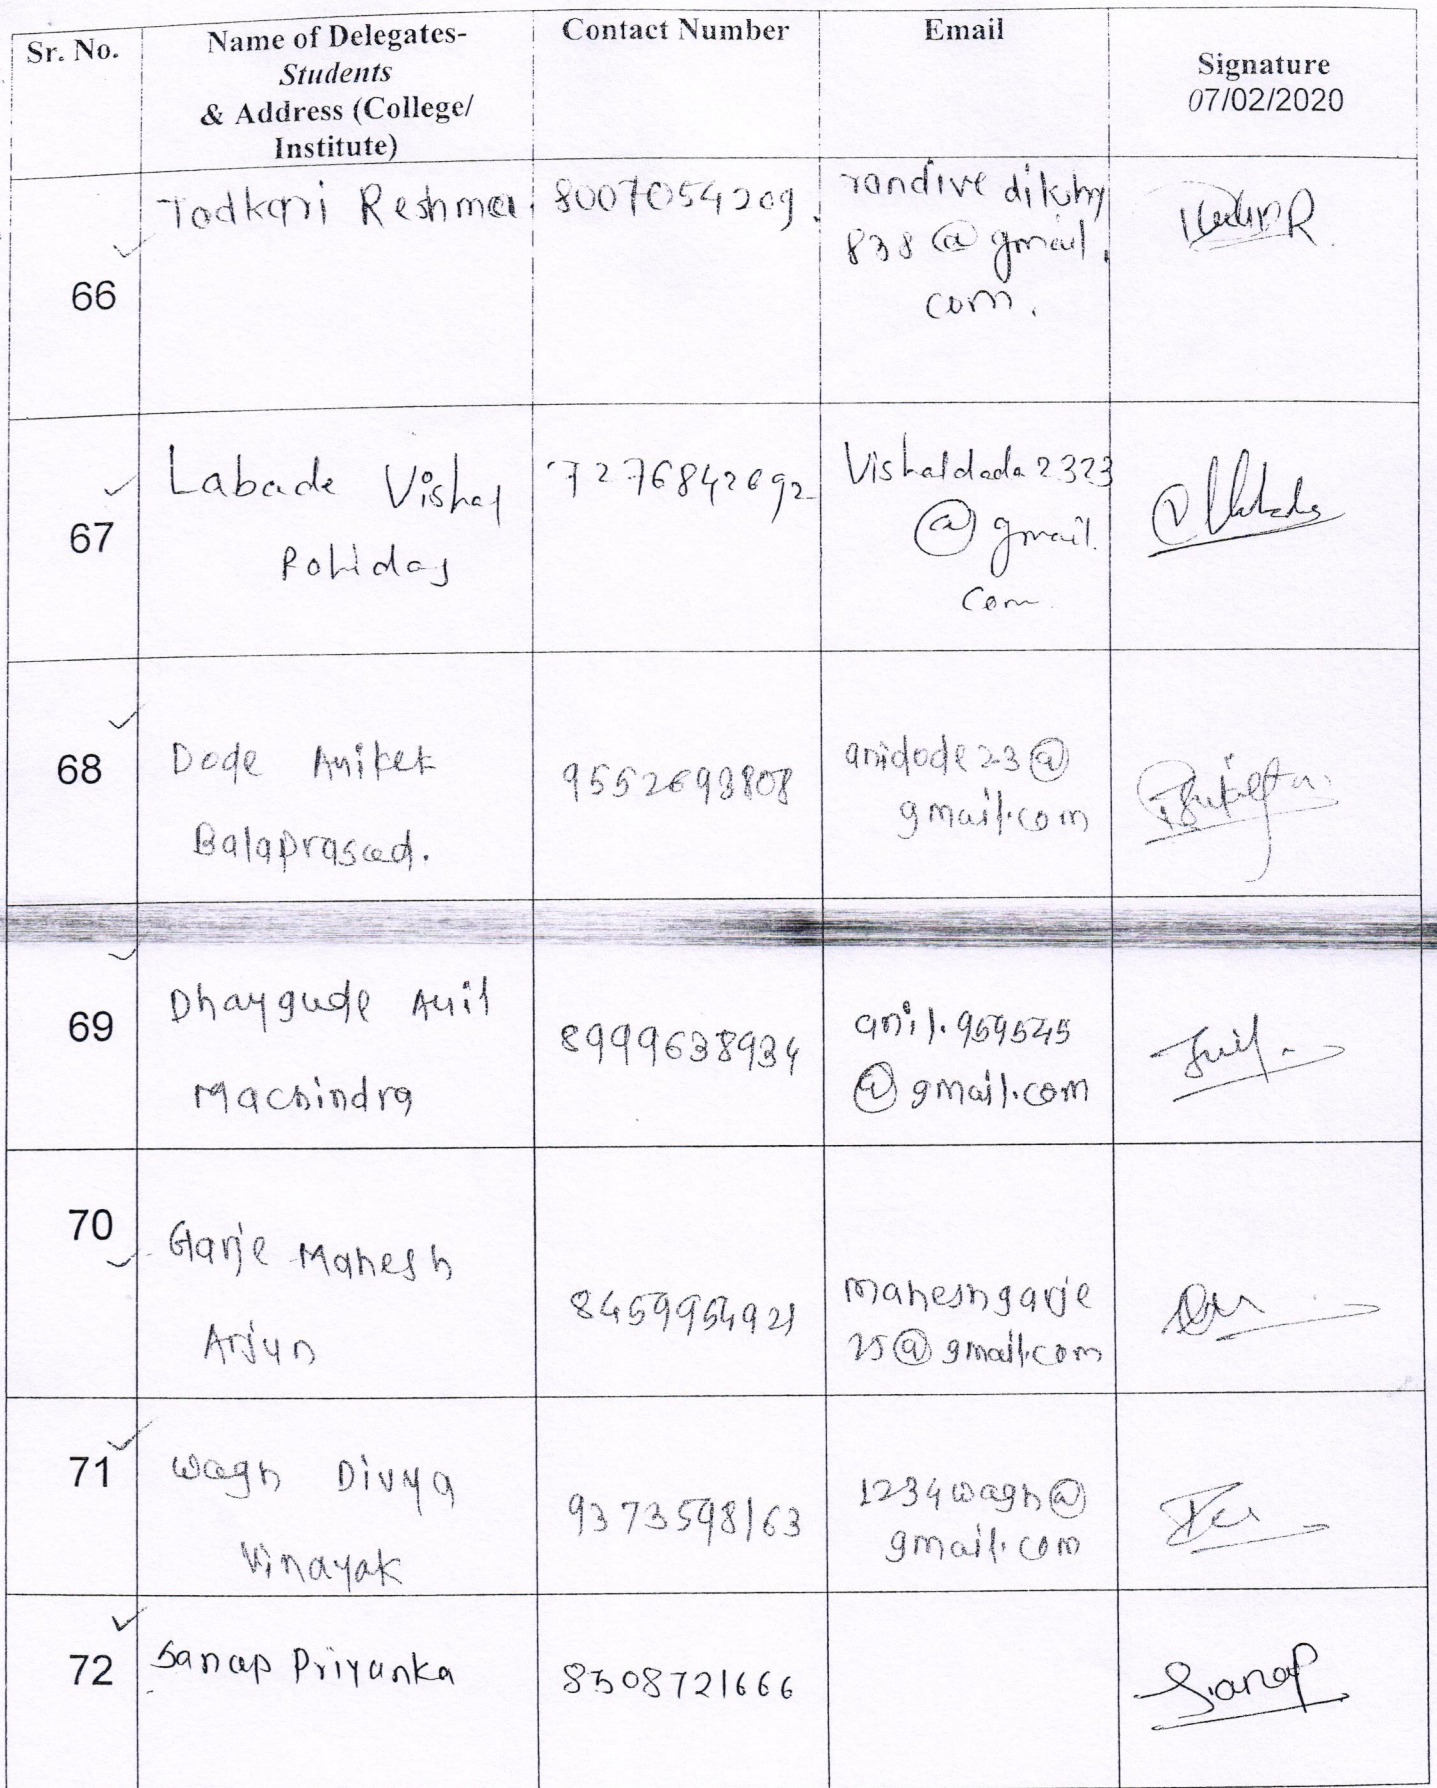 Sr. No.
Name of Delegates-
Students
& Address (College/
Institute)
Contact Number
Email
Signature
07/02/2020
66
Todkari Reshma.
8007054209.
randive
838@gmail.
com.
67
Labade Vishal
Rohidas
7276842692
Vishaldada2323
@gmail.
com.
68
Dode Aniket
Balaprasad.
9552693808
anidode23@
gmail.com
69
Dhaygude Anil
Machindra
8999638934
anil.959545
@gmail.com
70
Garje Mahesh
Arjun
8459954921
maheshgarje
25@gmail.com
71
Wagh Divya
Vinayak
9373598163
1234wagh@
gmail.com
72
Sanap Priyanka
8308721666
Sanap